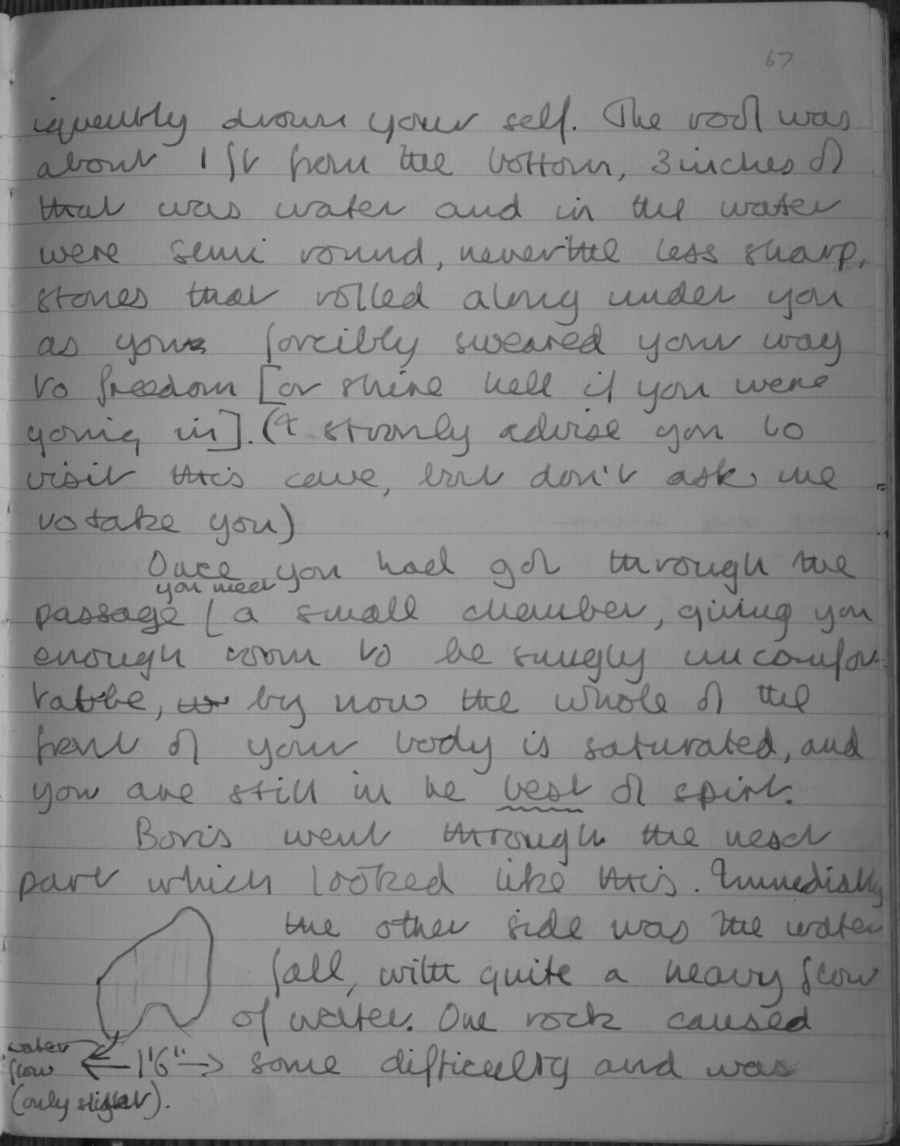 67
iqueubly drown your self. The roof was
about 1 ft from the bottom, 3 inches of
that was water and in the water
were semi round, never the less sharp,
stones that rolled along under you
as you forcibly sweared your way
to freedom [or shire hell if you were
going in]. (I stronly advise you to
visit this cave, but don't ask me
to take you)
Once you had got through the
you meet
passage a small chamber, giving you
enough room to be snugly uncomfor-
table, by now the whole of the
front of your body is saturated, and
you are still in he best of spirt.
Boris went through the next
part which looked like this. Immedially
the other side was the water
fall, with quite a heavy flow
of water. One rock caused
water
flow
← 1'6" → some difficulty and was
(only slight).